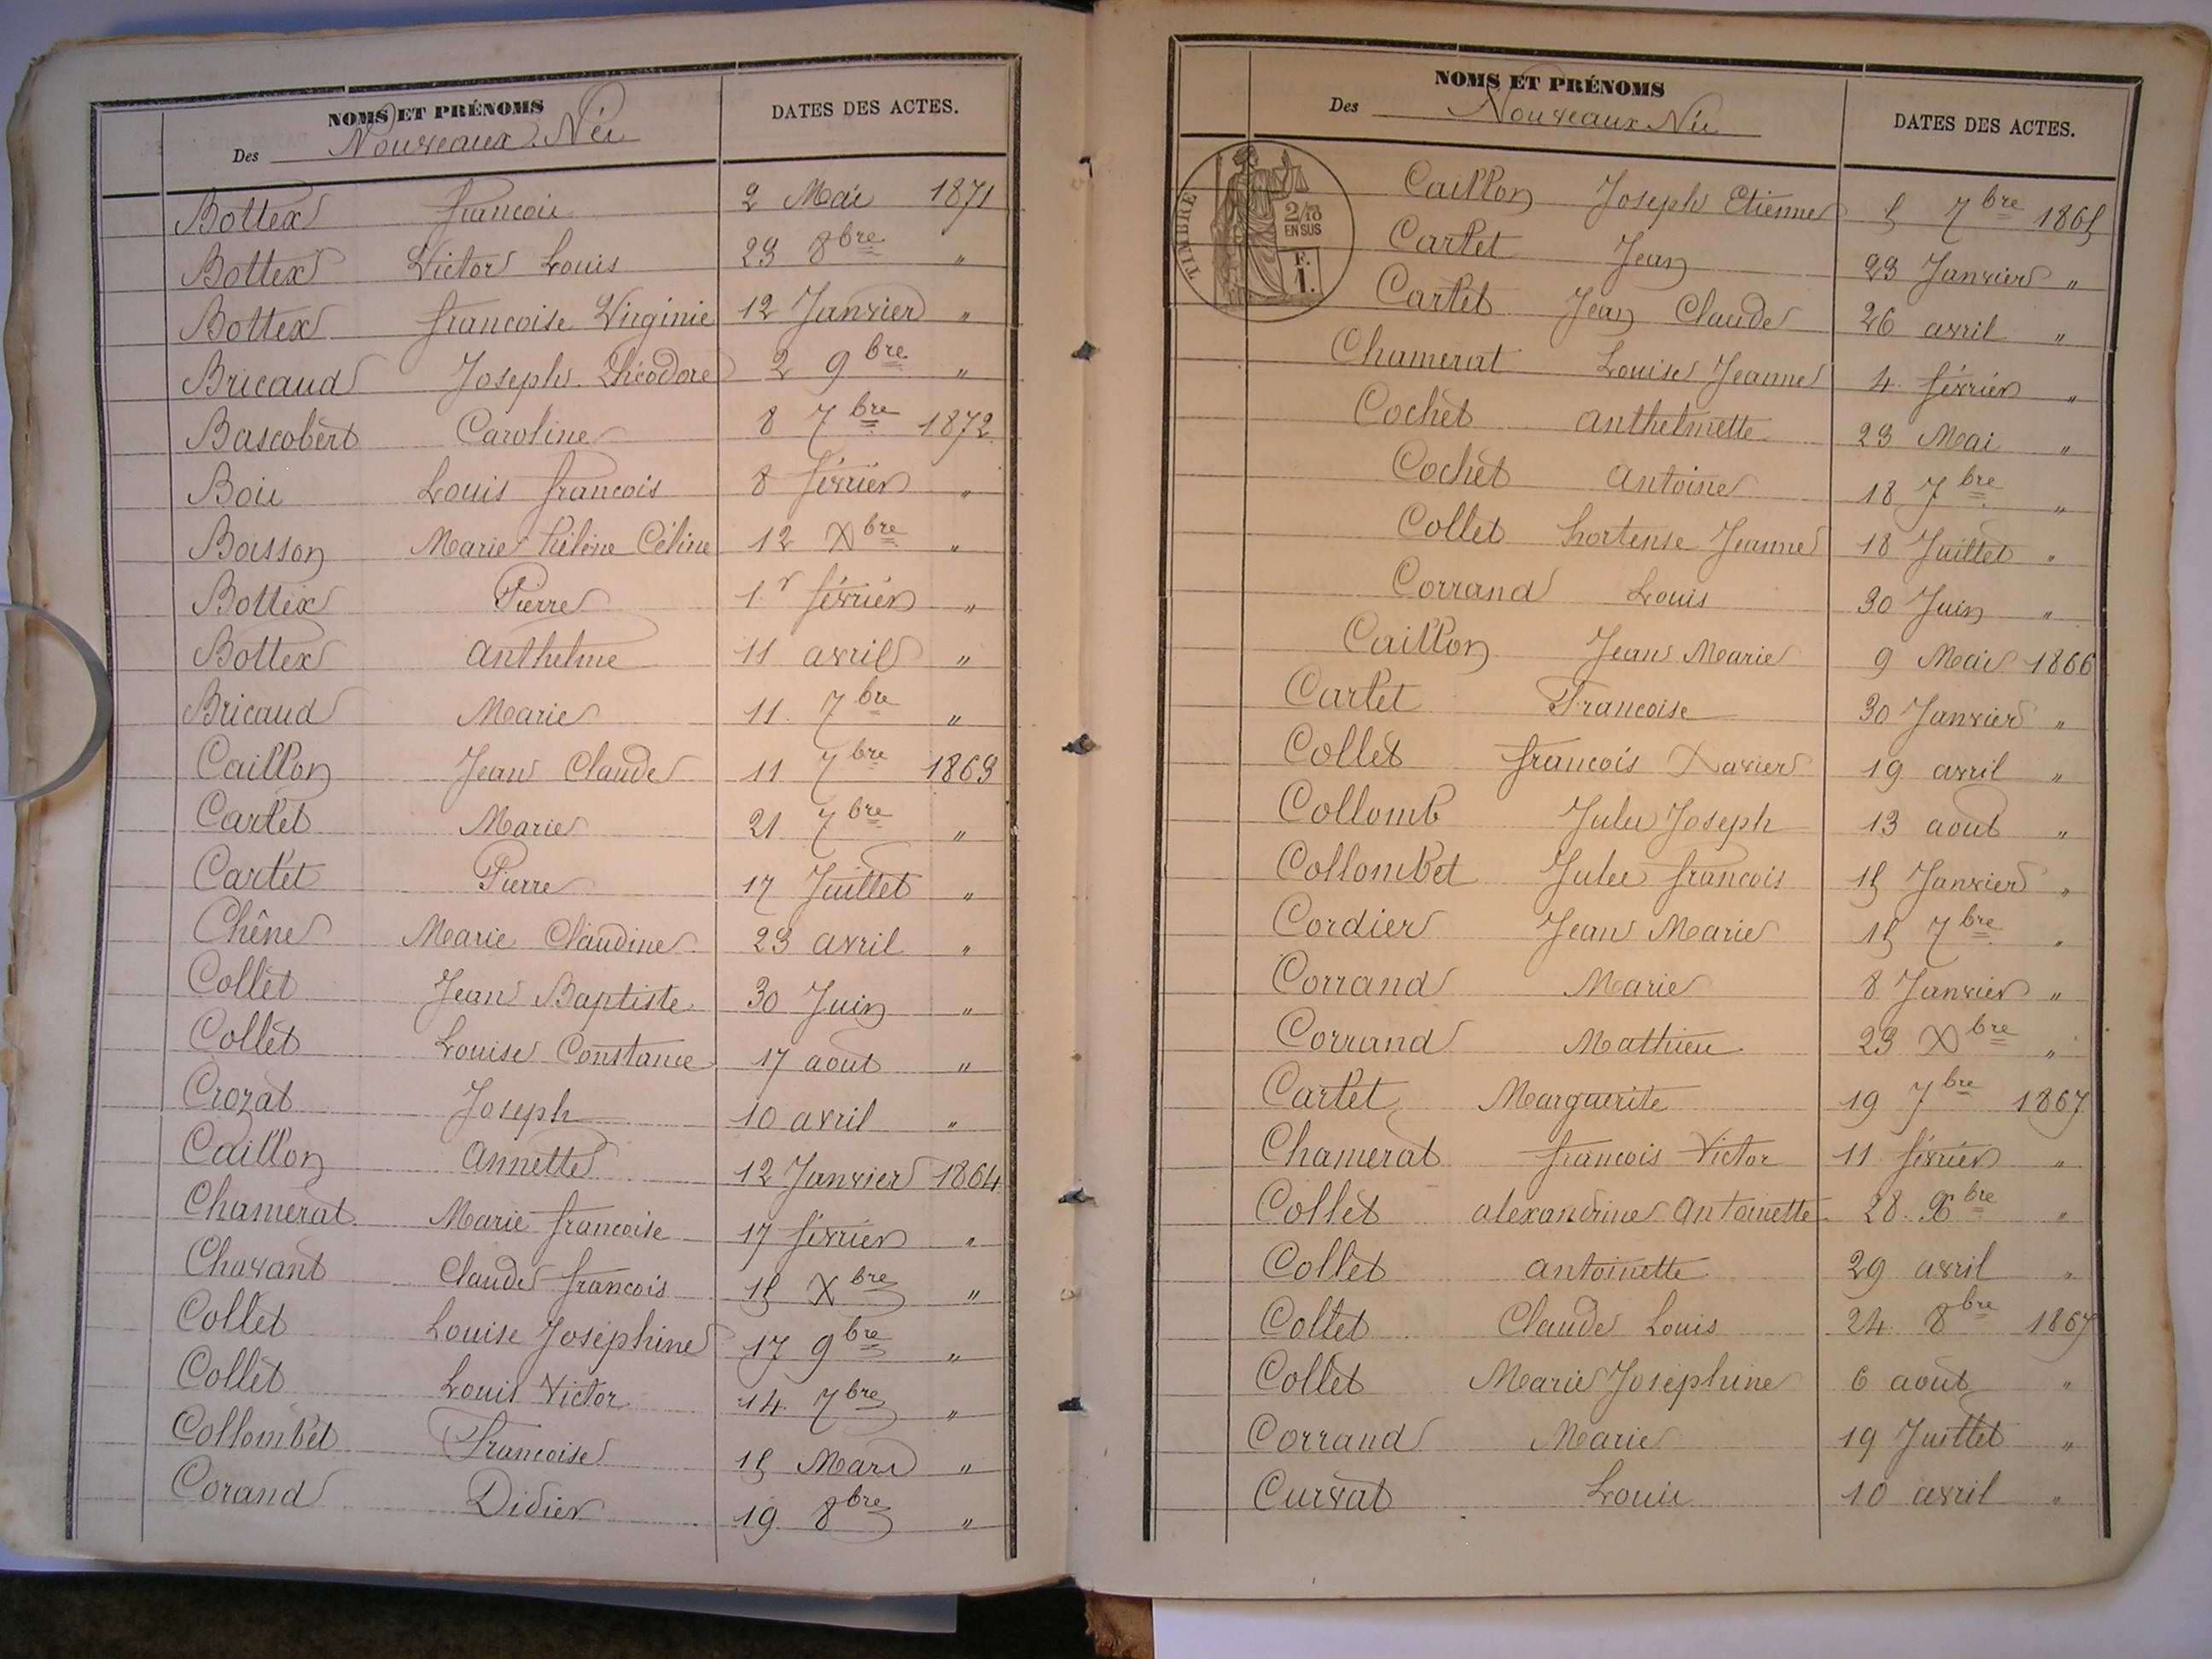 NOMS ET PRÉNOMS
Des Nouveaux Nés
DATES DES ACTES.
Bottex francois 2 Mai 1871
Bottex Victor Louis 23 8bre "
Bottex francoise Virginie 12 Janvier "
Bricaud Joseph Théodore 2 9bre "
Bascobert Caroline 8 7bre 1872
Bois Louis francois 8 février "
Boisson Marie hélène Céline 12 Xbre "
Bottex Pierre 1r février "
Bottex Anthelme 11 avril "
Bricaud Marie 11 7bre "
Caillon Jean Claude 11 7bre 1863
Cartet Marie 21 7bre "
Cartet Pierre 17 Juillet "
Chêne Marie Claudine 23 avril "
Collet Jean Baptiste 30 Juin "
Collet Louise Constance 17 aout "
Crozat Joseph 10 avril "
Caillon Annette 12 Janvier 1864
Chamerat Marie francoise 17 février "
Chavant Claude francois 15 Xbre "
Collet Louise Joséphine 17 9bre "
Collet Louis Victor 14 7bre "
Collombet Francoise 15 Mars "
Corand Didier 19 8bre "
NOMS ET PRÉNOMS
Des Nouveaux Nés
DATES DES ACTES.
TIMBRE
2/10
EN SUS
F.
1.
Caillon Joseph Etienne 5 7bre 1865
Cartet Jean 23 Janvier "
Cartet Jean Claude 26 avril "
Chamerat Louise Jeanne 4 février "
Cochet Anthelmette 23 Mai "
Cochet Antoine 18 7bre "
Collet hortense Jeanne 18 Juillet "
Corrand Louis 30 Juin "
Caillon Jean Marie 9 Mai 1866
Cartet Francoise 30 Janvier "
Collet francois Xavier 19 avril "
Collomb Jules Joseph 13 aout "
Collombet Jules francois 15 Janvier "
Cordier Jean Marie 15 7bre "
Corrand Marie 8 Janvier "
Corrand Mathieu 23 Xbre "
Cartet Marguerite 19 7bre 1867
Chamerat francois Victor 11 février "
Collet alexandrine Antoinette 28 bre "
Collet antoinette 29 avril "
Collet Claude Louis 24 8bre 1867
Collet Marie Joséphine 6 aout "
Corrand Marie 19 Juillet "
Curvat Louis 10 avril "